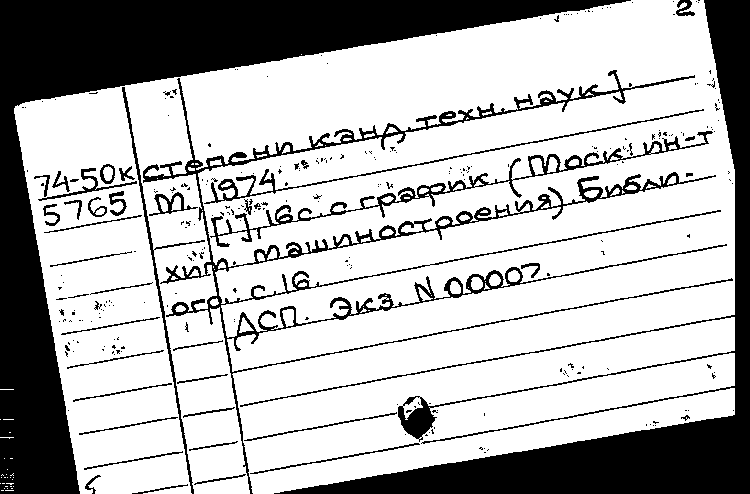 2
74-50к степени канд. техн. наук].
5765 М., 1974.
[1], 16 с. с график. (Моск. ин-т
хим. машиностроения). Библи-
огр.: с. 16.
ДСП. Экз. N 00007.